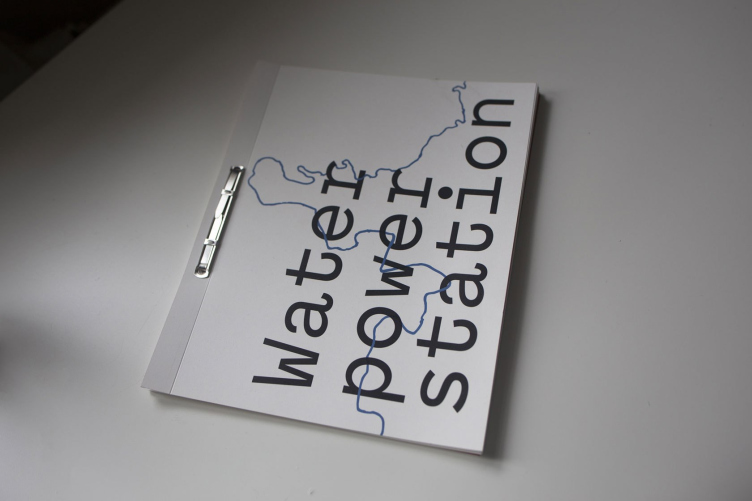 Water
power
station